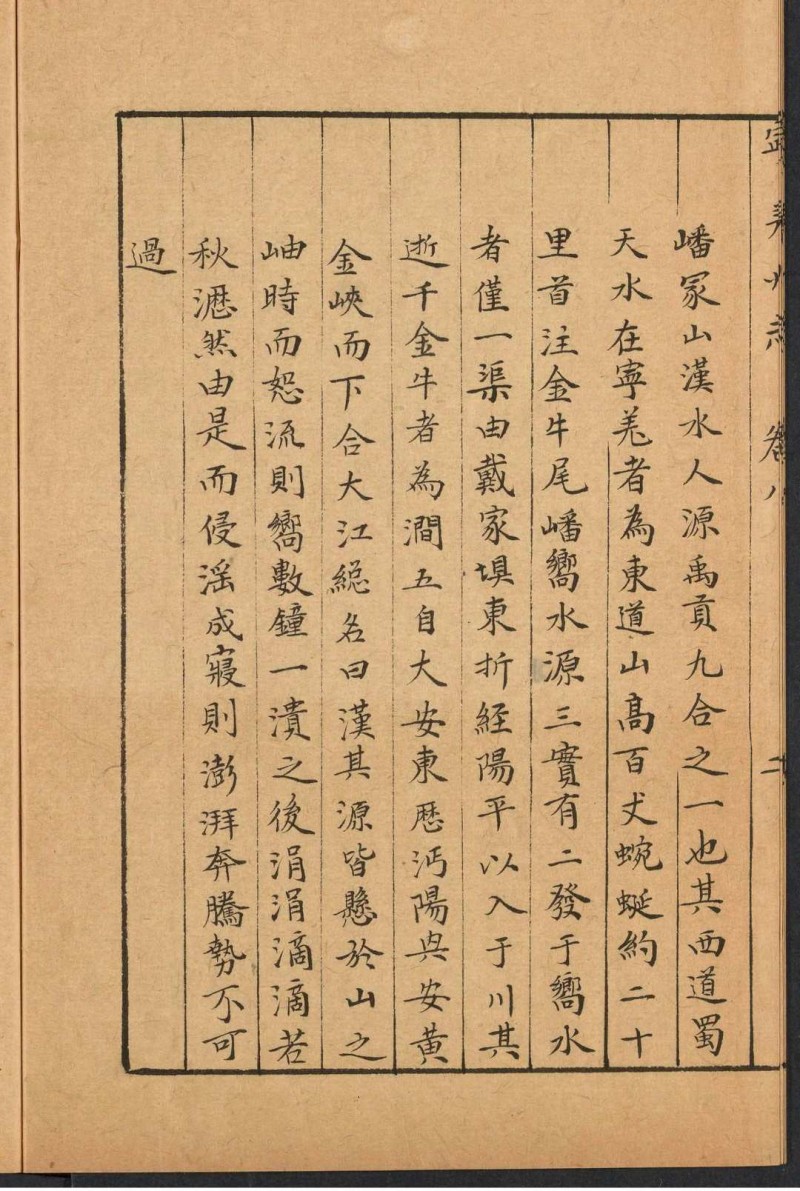 寧羌州志 卷八
嶓冢山漢水人源禹貢九合之一也其西道蜀
天水在寧羌者為東道山高百丈蜿蜒約二十
里首注金牛尾嶓嚮水源三實有二發于嚮水
者僅一渠由戴家埧東折経陽平以入于川其
逝千金牛者為澗五自大安東歴沔陽與安黃
金峽而下合大江総名曰漢其源皆懸於山之
岫時而怒流則嚮數鐘一潰之後涓涓滴滴若
秋瀝然由是而侵滛成寢則澎湃奔騰勢不可
過